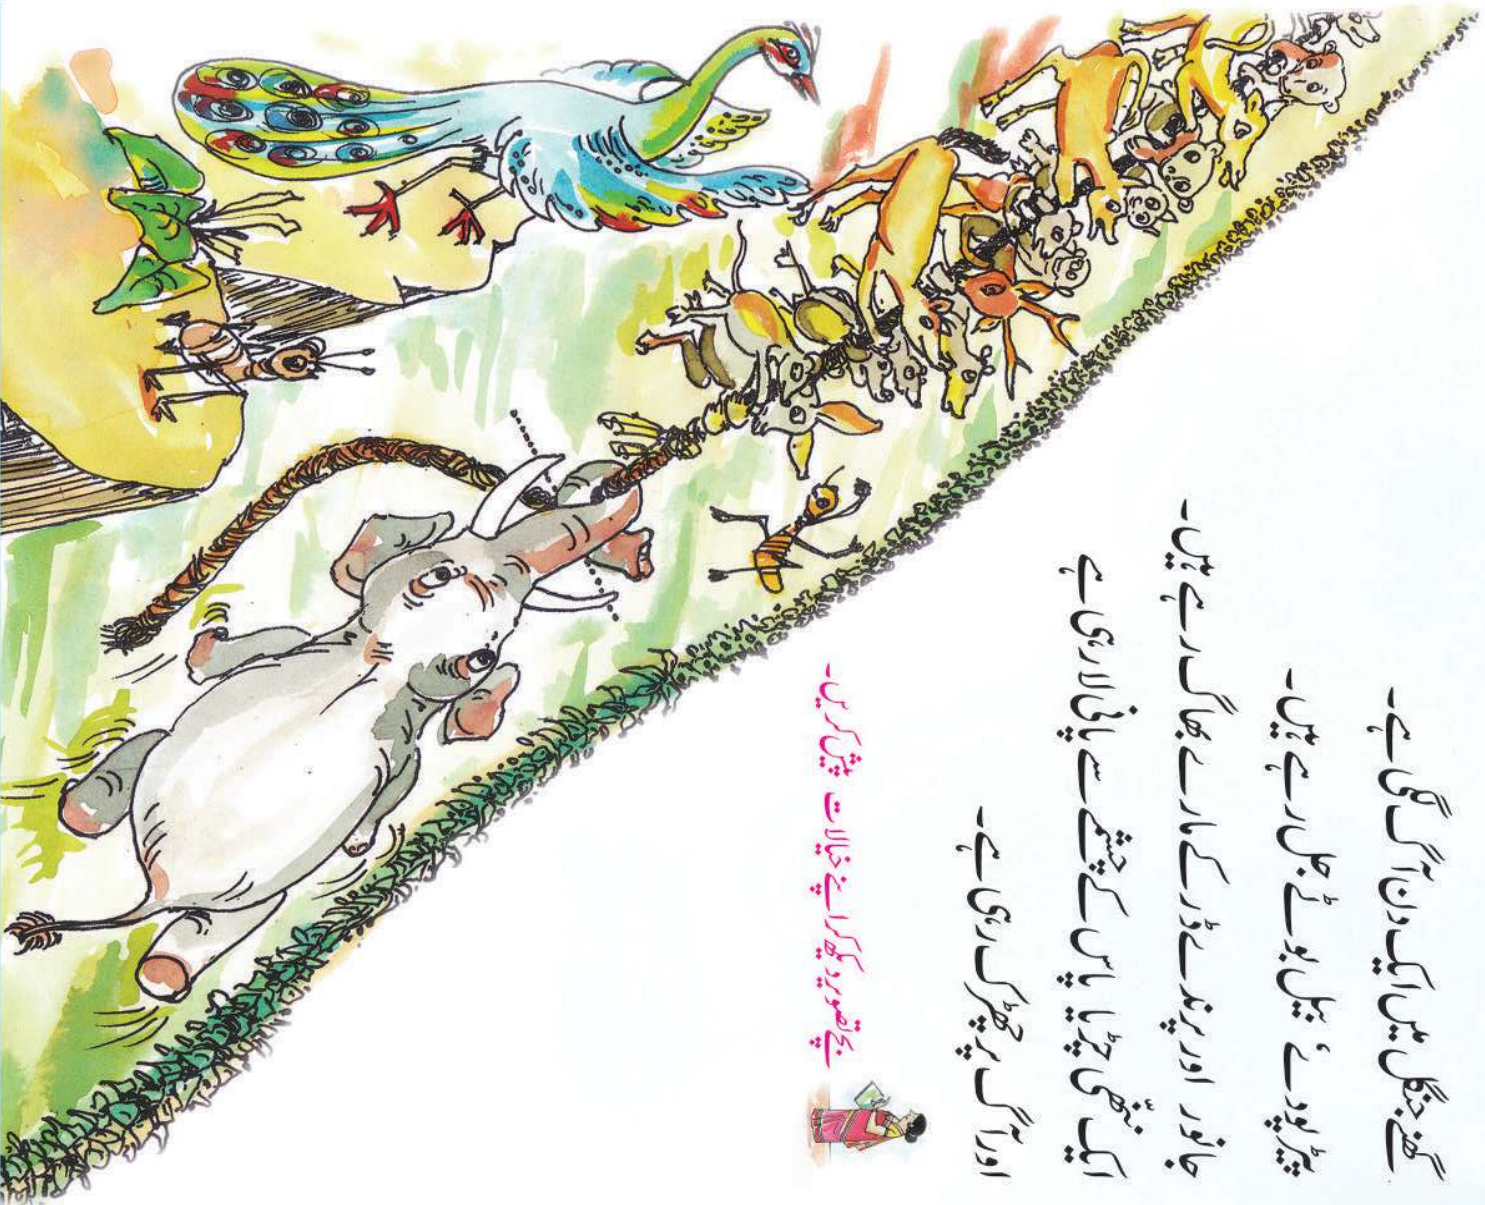 گھنے جنگل میں ایک دن آگ لگی ہے۔
پیڑ پودے، بیل بوٹے جل رہے ہیں۔
جانور اور پرندے ڈر کے مارے بھاگ رہے ہیں۔
ایک ننھّی چڑیا پاس کے چشمے سے پانی لا رہی ہے
اور آگ پر چھڑک رہی ہے۔
بچے تصویر دیکھ کر اپنے خیالات پیش کریں۔